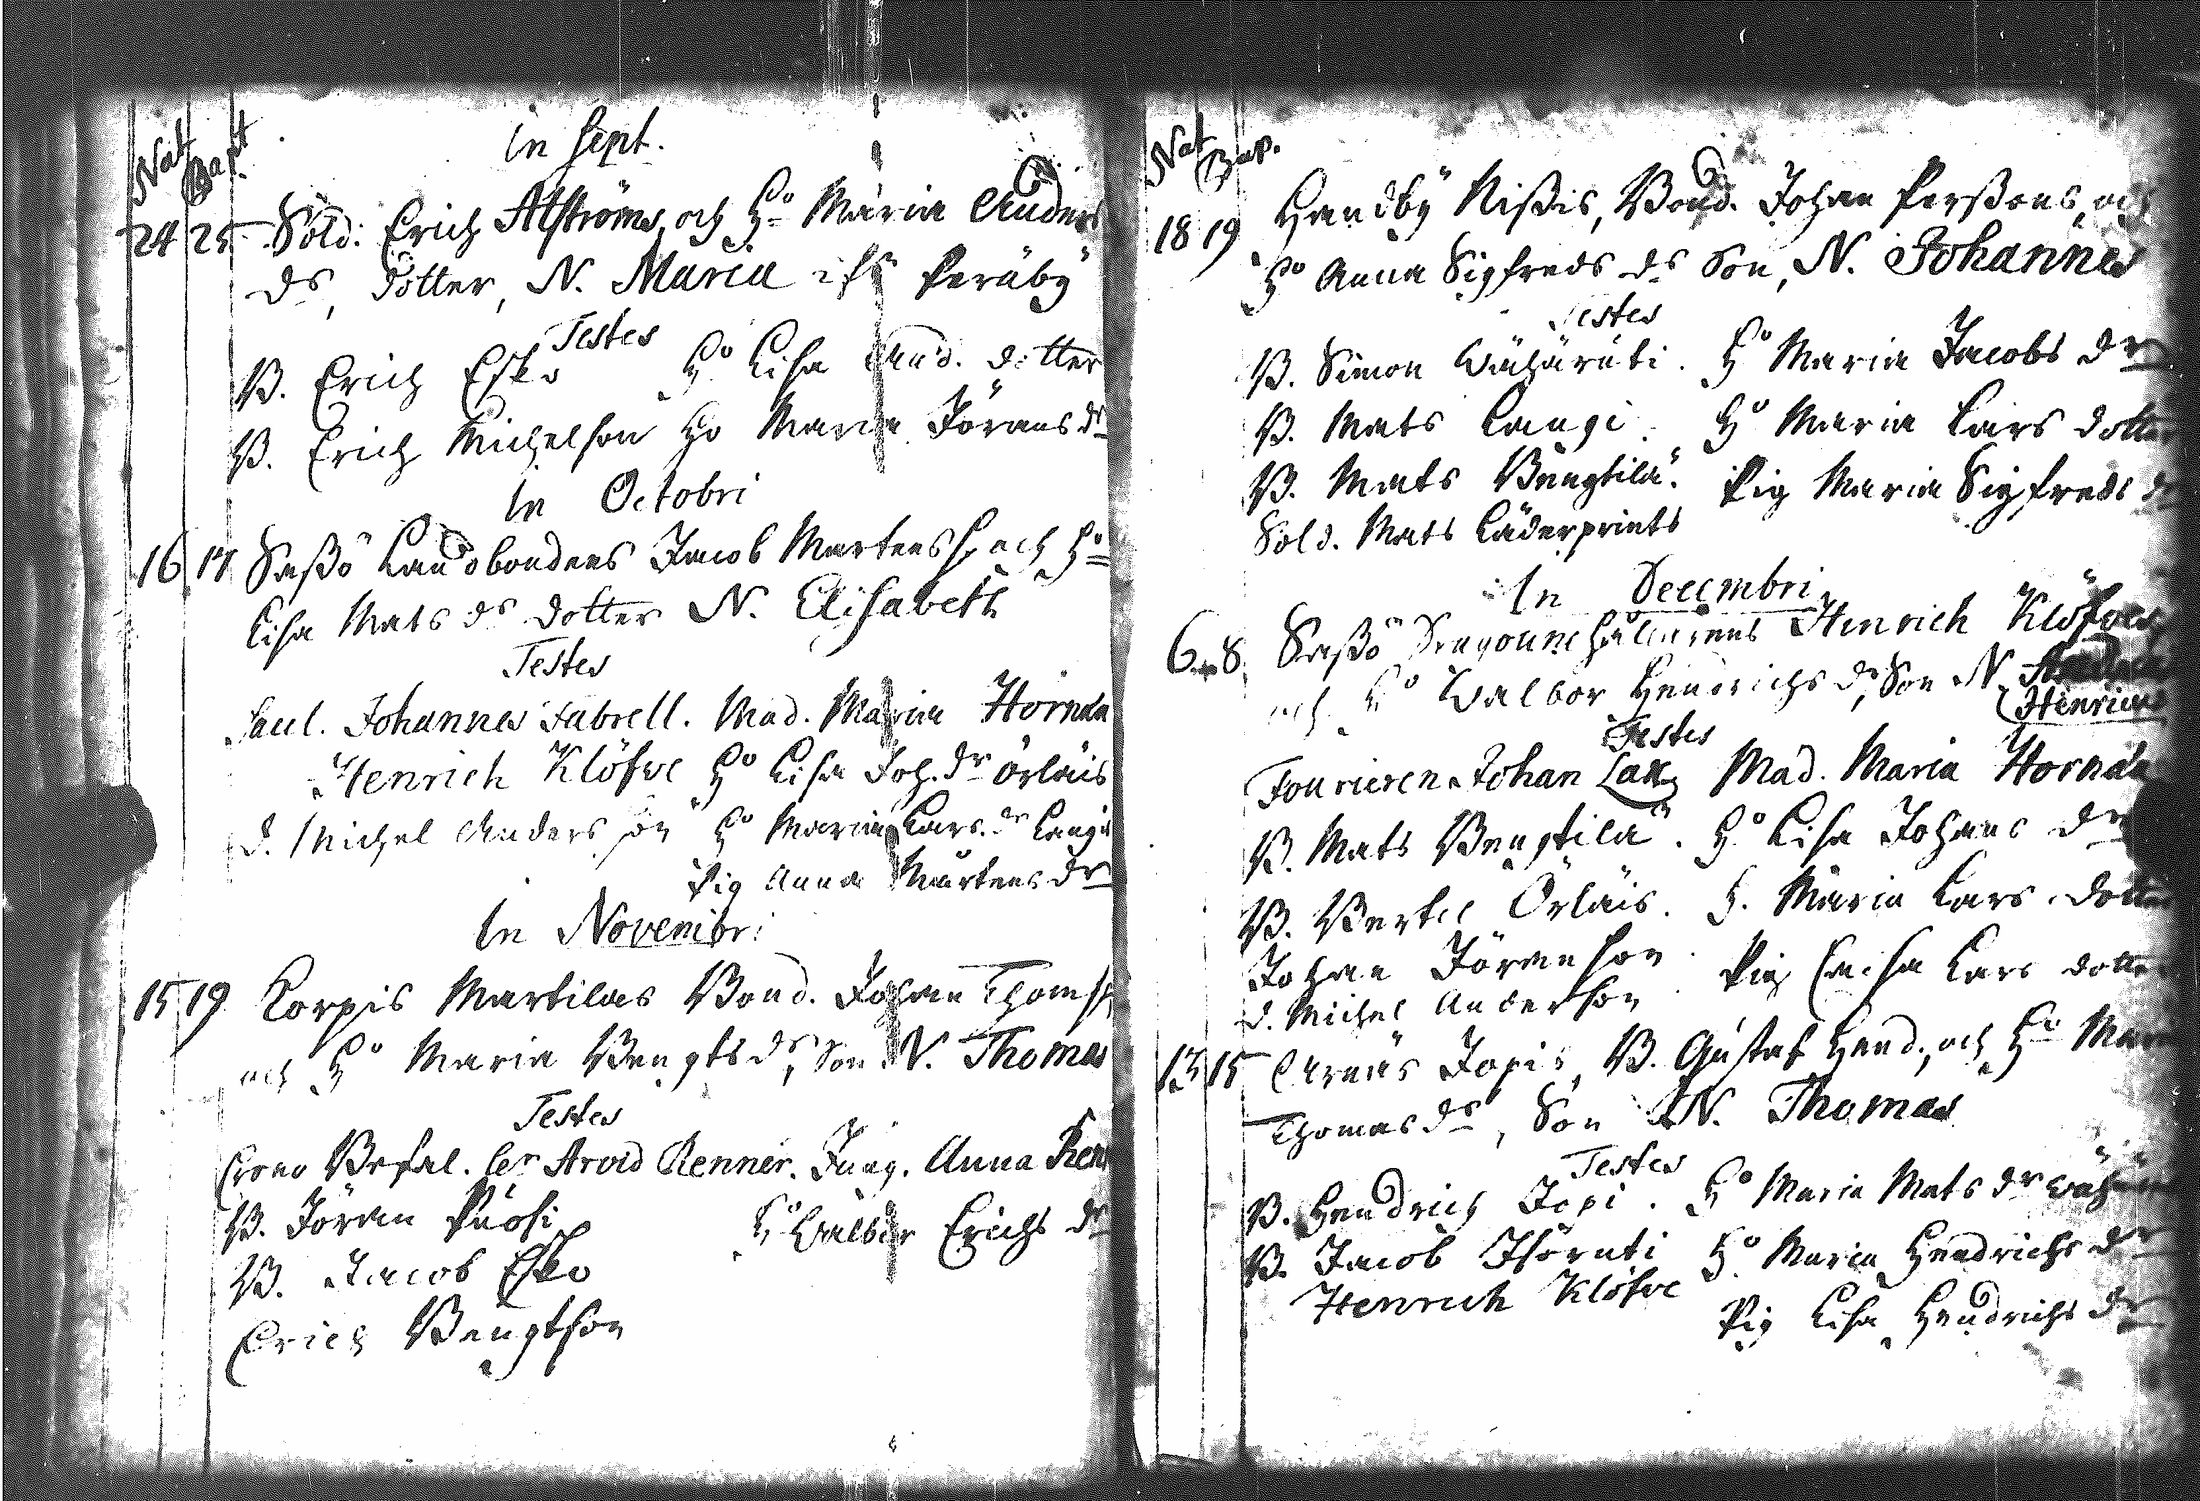 Nat Bapt
in Sept.
24 25 Sold. Erich Alströms, och Ho Maria Anders
dr, dotter, N. Maria ifr Peräby
Testes
B. Erich Esko Ho Lisa And. dotter
B. Erich Michelson Ho Maria Jörans dr
In Octobri
16 17 Saßö Landbondens Jacob Martens S. och Ho
Lisa Mats dr dotter N. Elisabeth
Testes
Johannes Fabrell. Mad. Maria Horn
Henrich Klöfwe Ho Lisa Joh. dr Örläis
d. Michel Anders son Ho Maria Lars dr Langi
Pig Anna Mårtens dr
In Novembri
15 19 Korpis Martilas Bond. Johan Thoms
och Ho Maria Bengts dr, Son N. Thomas
Testes
Crono Befal. Arvid Renner. Jung. Anna Ren
B. Jöran Puosi Ho Walbor Erichs dr
B. Jacob Esko
Erich Bengtson
Nat Bap.
18 19 Handby Nißis, Bond. Johan Perßons, och
Ho Anna Sigfreds dr Son, N. Johannes
Testes
B. Simon Wähäruti. Ho Maria Jacobs dr
B. Mats Langi. Ho Maria Lars dotter
B. Mats Bengtilä. Pig Maria Sigfreds
Sold. Mats Läderprints
In Decembri
6 8 Saßö Henrich Klöfves
och Ho Walbor Hendrichs dr, Son N.
Henricus
Testes
Fourieren Johan Lax Mad. Maria Horn
B. Mats Bengtilä. Ho Lisa Johans dr
B. Bertel Örläis. H. Maria Lars dotter
Johan Jöranson. Pig Lars dotter
d. Michel Anderson
13 15 Arnäs Jopis, B. Gustaf Hend., och Ho Maria
Thomas dr, Son N. Thomas
Testes
B. Hendrich Jopi. Ho Maria Mats dr
B. Jacob Isoruti Ho Maria Hendrichs dr
Henrich Klöfwe
Pig Lisa Hendrichs dr